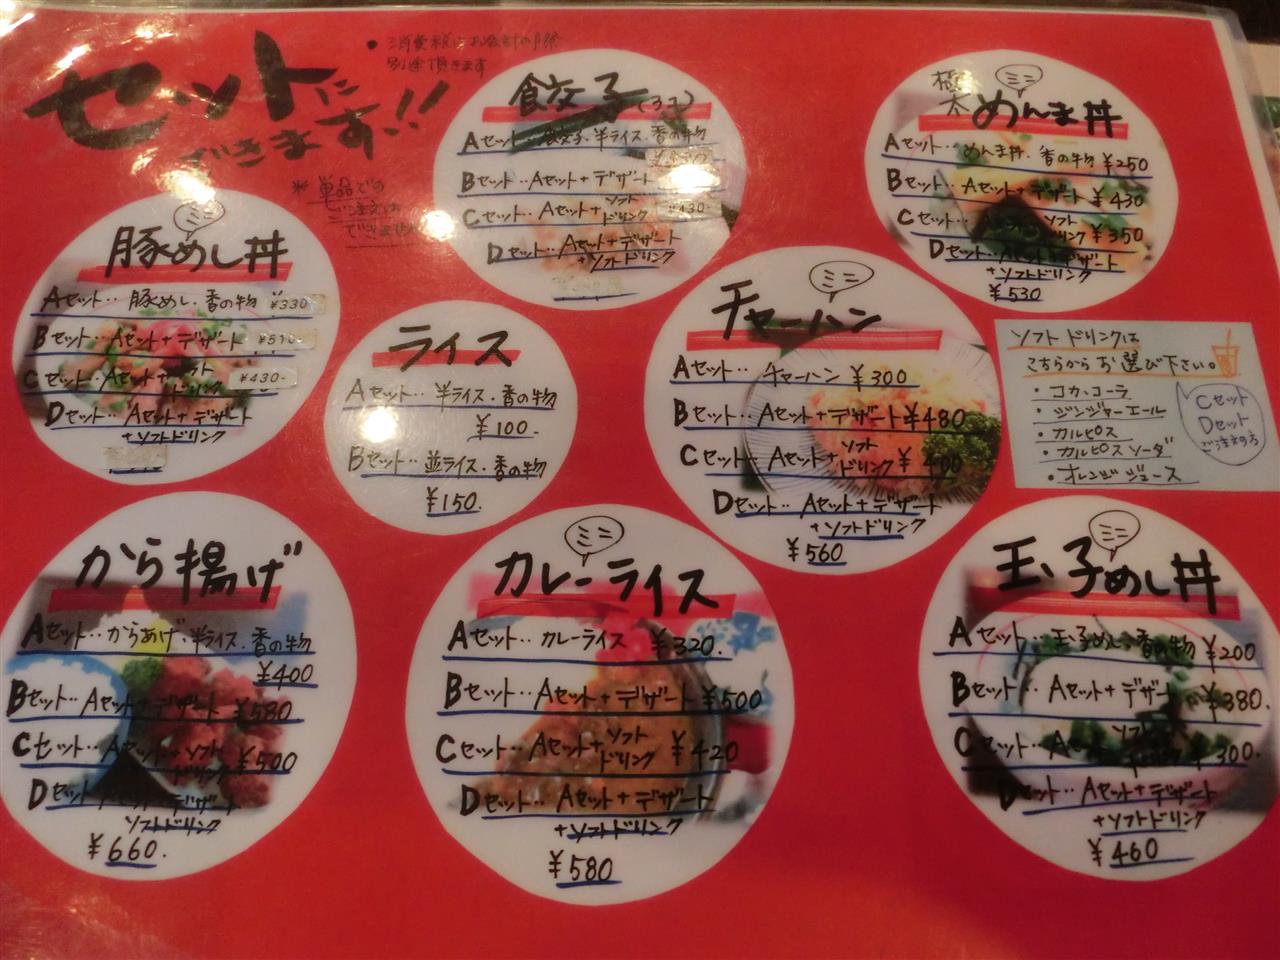 セットに
できます!!
● 消費税はお会計の際
別途頂きます
※ 単品での
ご注文は
できません
餃子(3ヶ)
Aセット‥餃子・半ライス・香の物
Bセット‥Aセット+デザート
Cセット‥Aセット+ソフトドリンク ¥430-
Dセット‥Aセット+デザート
+ソフトドリンク
ミニ
極太めんま丼
Aセット‥めんま丼・香の物 ¥250
Bセット‥Aセット+デザート ¥430
Cセット‥Aセット+ソフトドリンク ¥350
Dセット‥Aセット+デザート
+ソフトドリンク
¥530
ミニ
豚めし丼
Aセット‥豚めし・香の物 ¥330-
Bセット‥Aセット+デザート ¥510-
Cセット‥Aセット+ソフトドリンク ¥430-
Dセット‥Aセット+デザート
+ソフトドリンク
ライス
Aセット‥半ライス・香の物
¥100-
Bセット‥並ライス・香の物
¥150.
ミニ
チャーハン
Aセット‥チャーハン ¥300
Bセット‥Aセット+デザート ¥480
Cセット‥Aセット+ソフトドリンク ¥400
Dセット‥Aセット+デザート
+ソフトドリンク
¥560
ソフトドリンクは
こちらからお選び下さい。
・コカ・コーラ
・ジンジャーエール
・カルピス
・カルピスソーダ
・オレンジジュース
Cセット
Dセット
ご注文の方
から揚げ
Aセット‥からあげ・半ライス・香の物
¥400
Bセット‥Aセット+デザート ¥580
Cセット‥Aセット+ソフトドリンク ¥500
Dセット‥Aセット+デザート
ソフトドリンク
¥660.
ミニ
カレーライス
Aセット‥カレーライス ¥320.
Bセット‥Aセット+デザート ¥500
Cセット‥Aセット+ソフトドリンク ¥420
Dセット‥Aセット+デザート
+ソフトドリンク
¥580
ミニ
玉子めし丼
Aセット‥玉子めし・香の物 ¥200
Bセット‥Aセット+デザート ¥380.
Cセット‥Aセット+ソフトドリンク ¥300.
Dセット‥Aセット+デザート
+ソフトドリンク
¥460